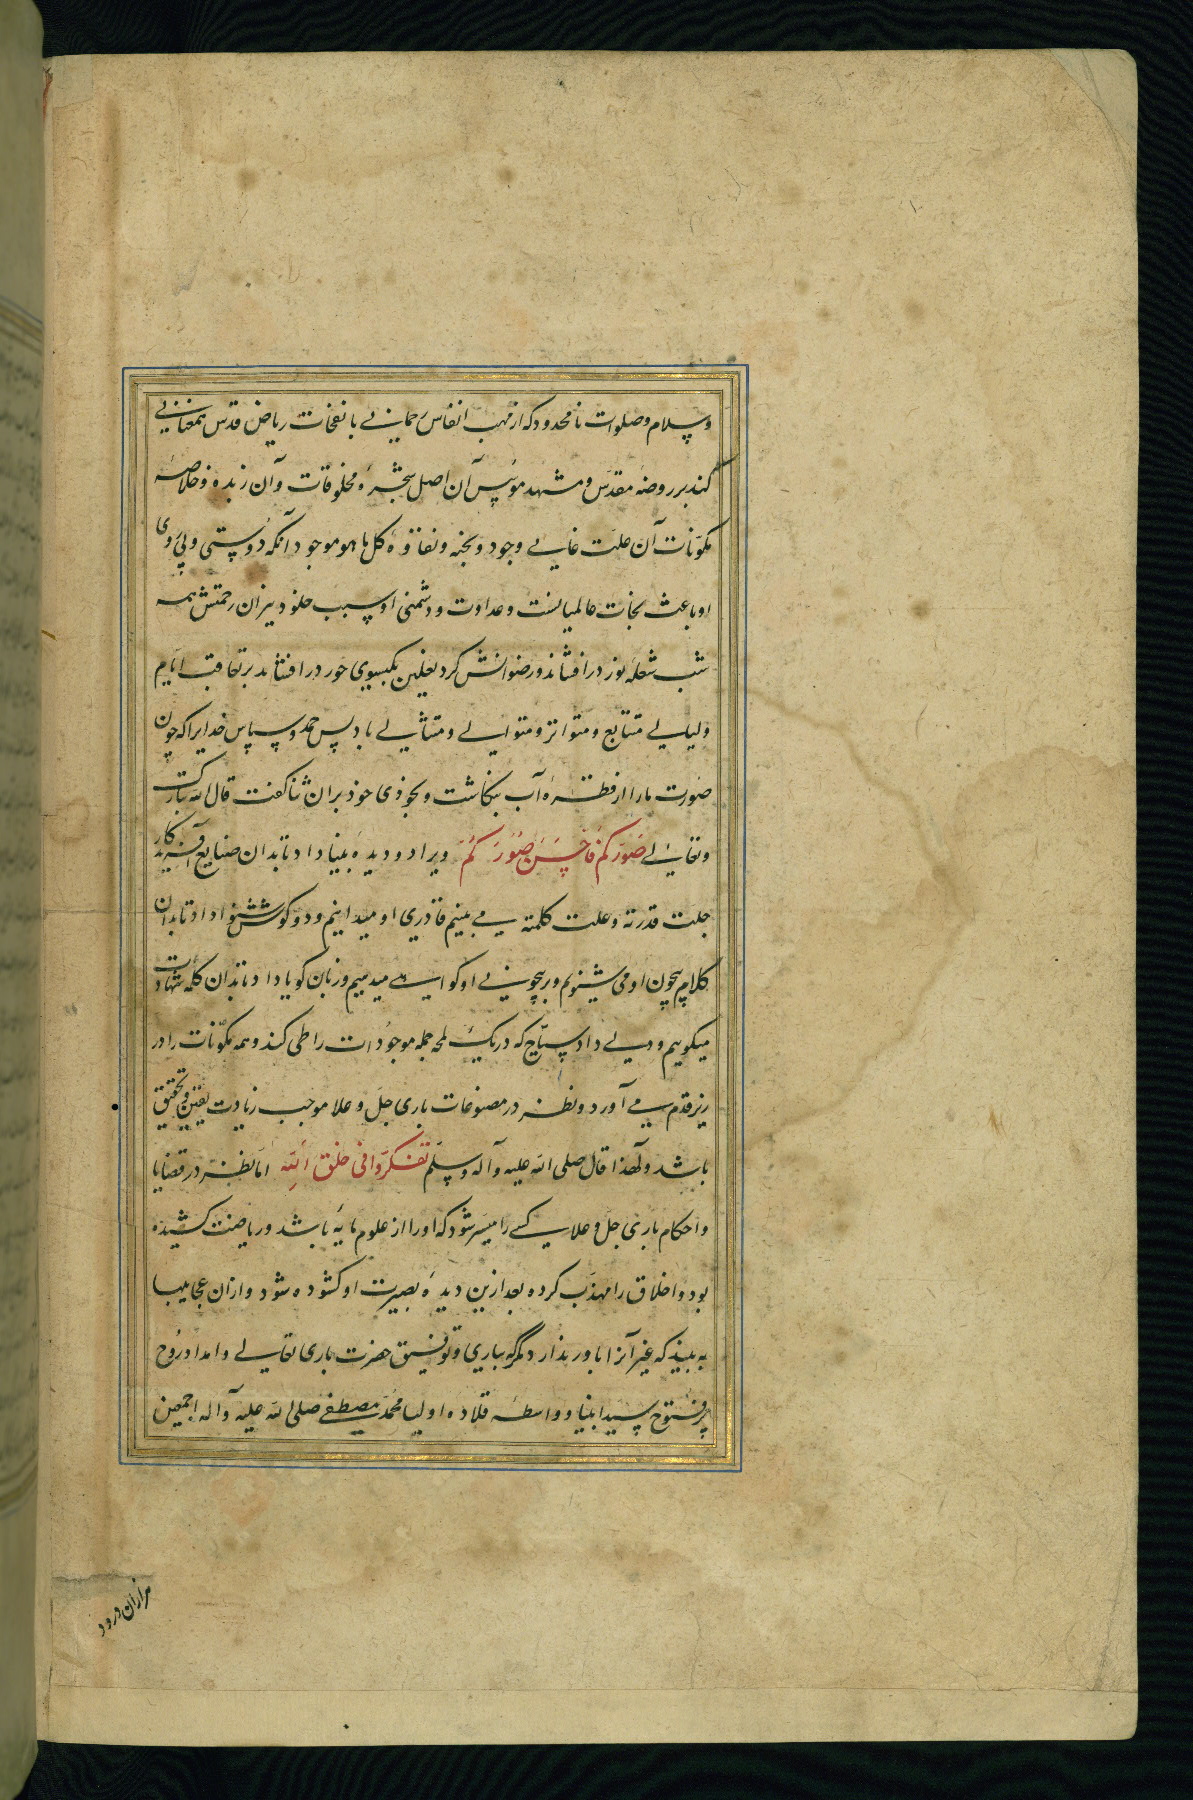 وسلام وصلوات نامحدود که از مهب انفاس رحمانی با نفخات ریاض قدس همعنانی
کند بر روضهٔ مقدس و مشهد مونس آن اصل شجرهٔ مخلوقات و آن زبده و خلاصهٔ
مکوّنات آن علت غایی وجود و نخبه و نقاوهٔ کل ما هو موجود آنکه دوستی و پی روی
او باعث نجات عالمیانست و عداوت و دشمنی او سبب خلود نیران رحمتش همه
شب شعلهٔ نور در افشاند و رضوانش کرد نعلین بگیسوی حور در افشاند بر تعاقب ایام
ولیالی متتابع و متواتر و متوالی و متتالی باد پس حمد و سپاس خدایرا که چون
صورت ما را از قطرهٔ آب بنگاشت و بخودی خود بران ثنا گفت قال الله تبارک
وتعالی صَوَّرَکُم فَاَحْسَنَ صُوَرَکُمْ و برا دو دیدهٔ بینا داد تا بدان صنایع آفریدگار
جلت قدرته و علت کلمته می بینیم قادری او میدانیم و دو گوش شنوا داد تا بدان
کلام بیچون او می شنویم و بر بیچونی او گواهی میدهیم و زبان گویا داد تا بدان کلمهٔ شهادت
میگوییم و دلی داد سیّاح که در یک لمحه جمله موجودات را طی کند و همه مکوّنات را در
زیر قدم می آورد و نظر در مصنوعات باری جل و علا موجب زیادت یقین و تحقیق
باشد و لهذا قال صلی الله علیه وآله وسلم تفکروا فی خلق الله اما نظر در قضایا
و احکام باری جل و علا کسی را میسر شود که او را از علوم مایهٔ باشد و ریاضت کشیده
بود و اخلاق را مهذب کرده بعد ازین دیدهٔ بصیرت او گشوده شود و ازان عجایبها
به بیند که غیر آنرا باور ندارد مگر بیاری و توفیق حضرت باری تعالی و امداد روح
پر فتوح سید انبیا و واسطهٔ قلادهٔ اولیا محمد مصطفی صلی الله علیه وآله اجمعین
هزاران درود